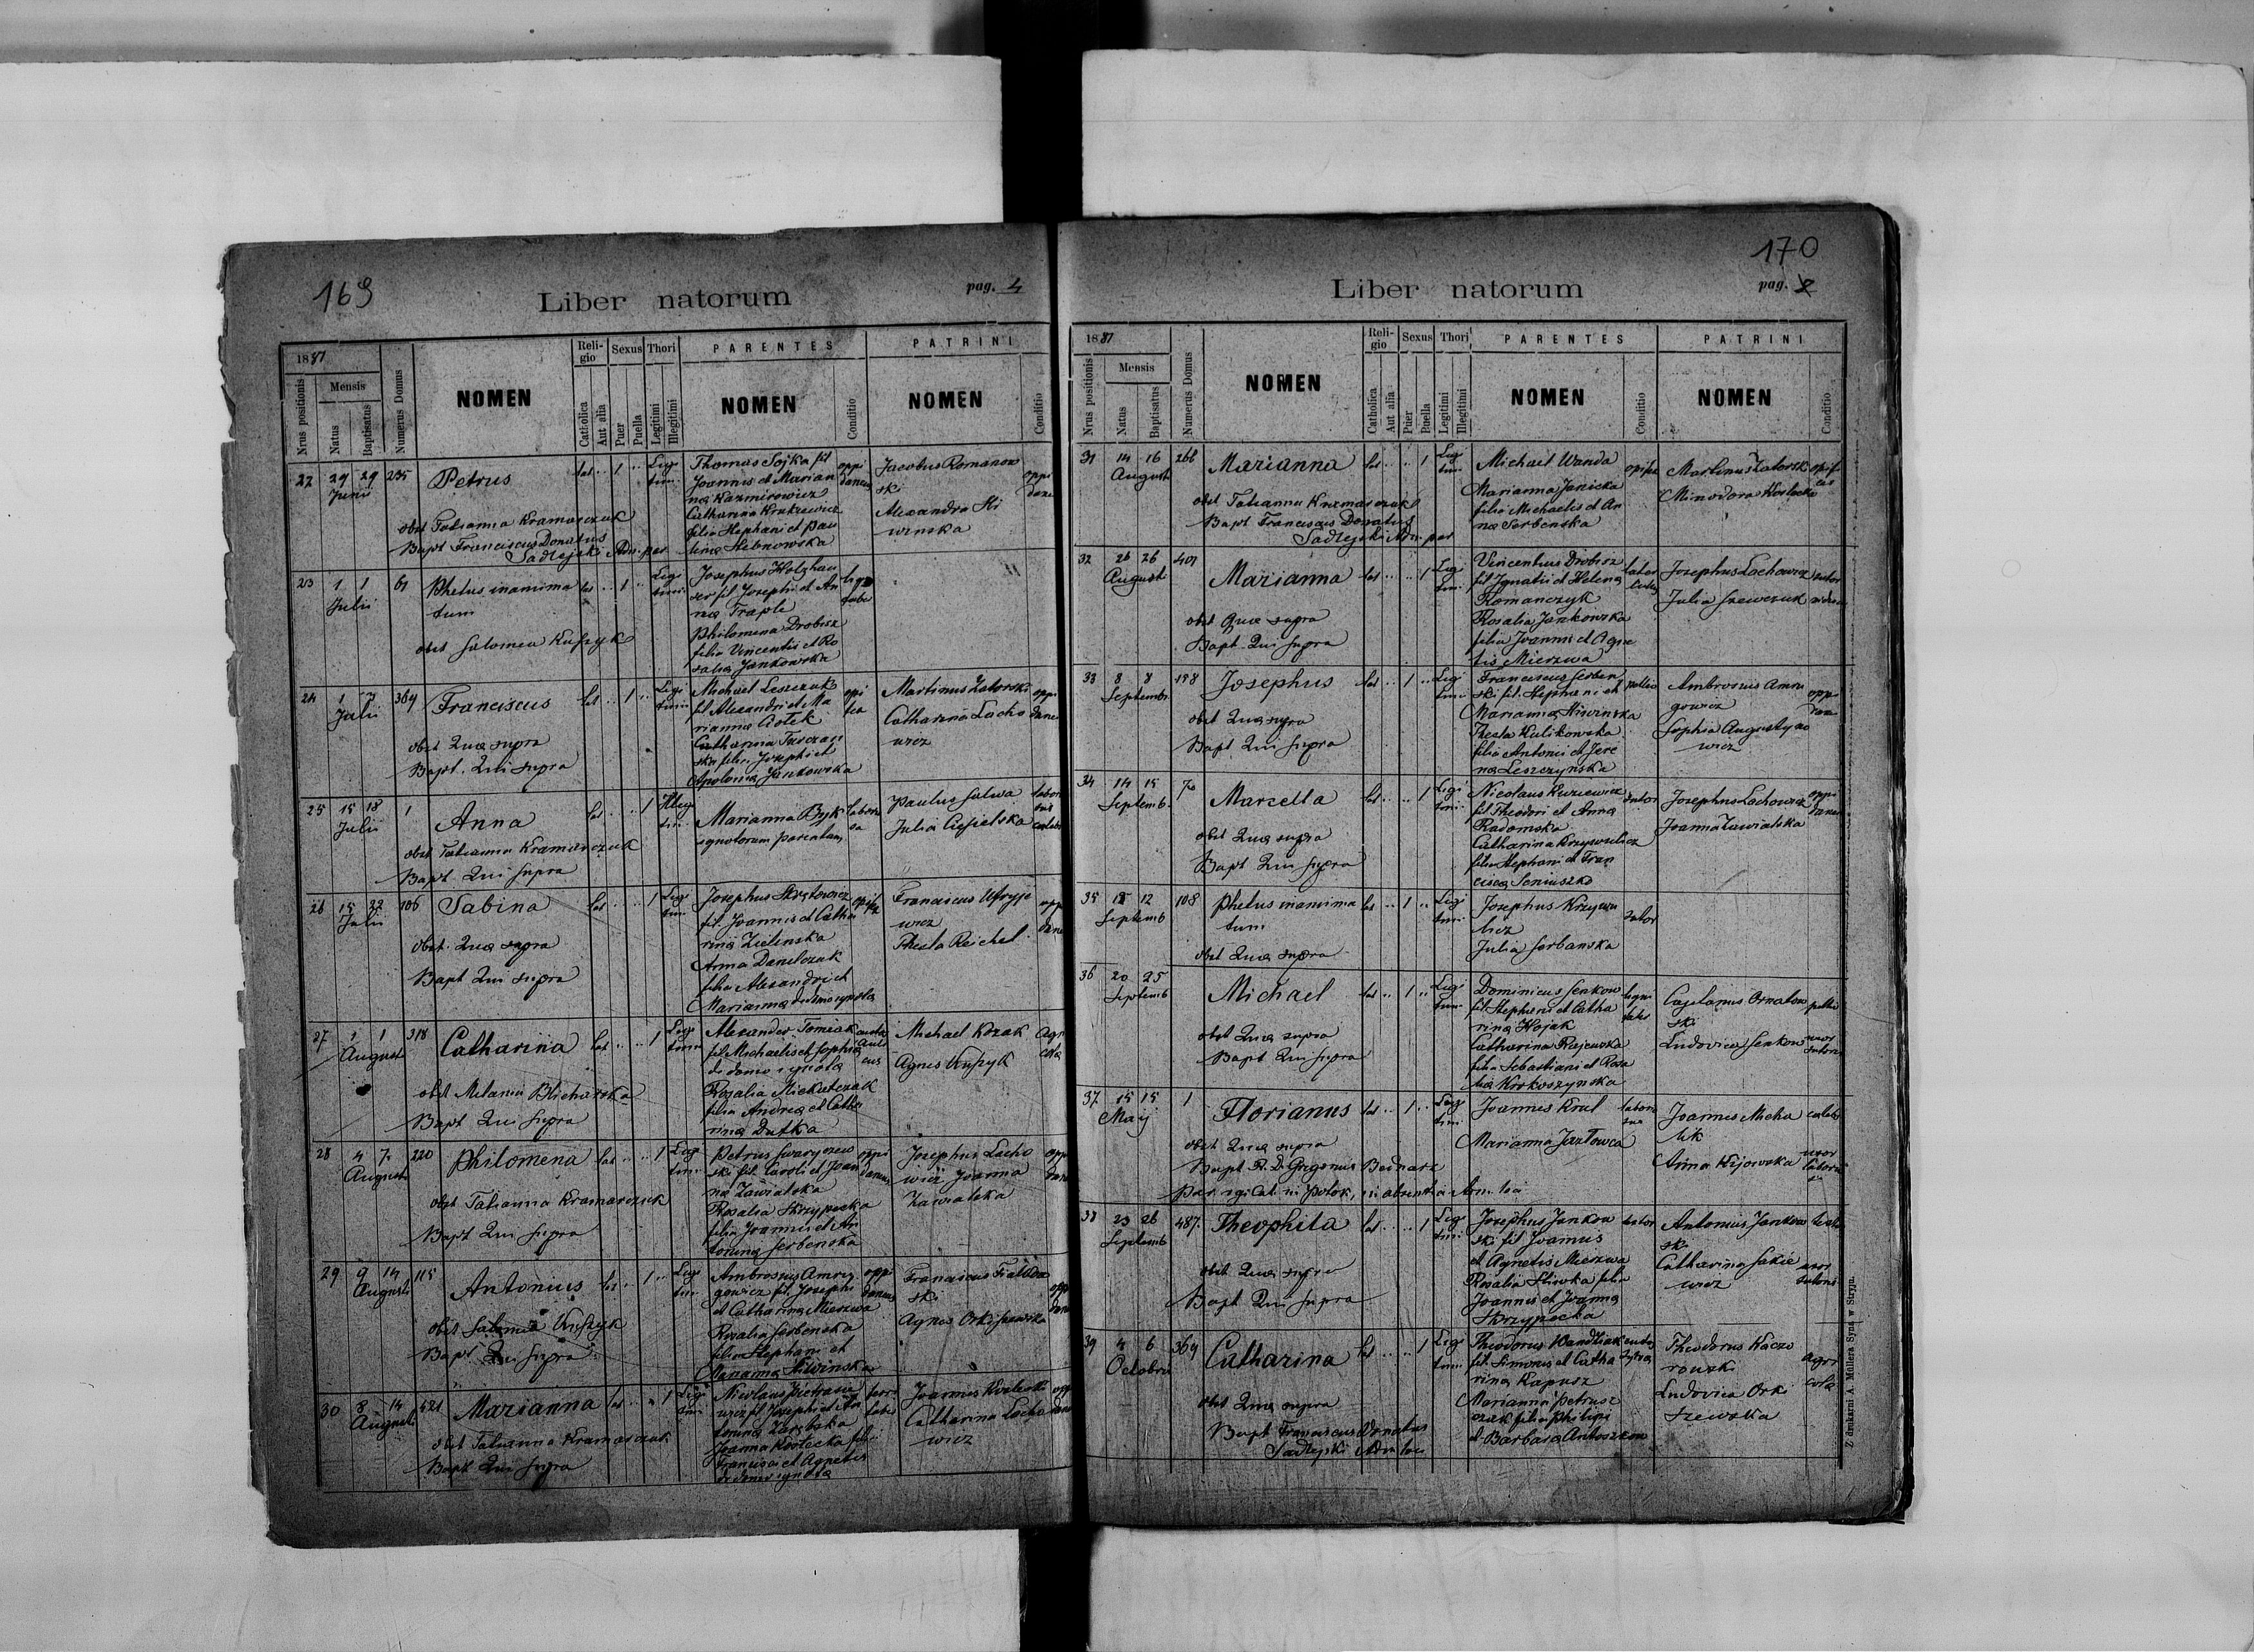 169
Liber natorum
pag. 4
1881
Nrus positionis
Mensis
Natus
Baptisatus
Numerus Domus
NOMEN
Religio
Catholica
Aut alia
Sexus
Puer
Puella
Thori
Legitimi
Illegitimi
PARENTES
NOMEN
Conditio
PATRINI
NOMEN
Conditio
22 29 29 235
Junii
Petrus
obst Tatianna Kramarczuk
Bapt Franciscus Donatus
Sadlejski Adm. par
lat 1
Legi
timi
Thomas Sojka fil
Joannis et Marian
na Kazmirowicz
Catharina
filia Stephani et Pau
lina
oppi
danus
Jacobus Romanow
ski
Alexandra Hi
winska
23 1 1 61
Julii
Phetus inanima
tum
obst Salomea Kuszyk
lat 1
Legi
timi
Josephus Holzhau
ser fil Josephi et An
na Traple
Philomena Drobisz
filia Vincentii et Ro
salia Jankowska
24 1 7 369
Julii
Franciscus
obst Qua supra
Bapt. Qui supra
lat 1
Legi
timi
Michael Leszczuk
fil Alexandri et Ma
rianna
Catharina
filia Josephi et
Apolonia Jankowska
opi
fex
Martinus Zatorski
Catharina Lacho
wicz
25 15 18 1
Julii
Anna
obst Tatianna Kramarczuk
Bapt. Qui supra
lat 1
Illegi
tim
Marianna Byk
ignotorum parentum
Paulus Salwa
Julia Ciesielska
26 15 22 106
Julii
Sabina
obst. Qua supra
Bapt Qui supra
lat 1
Legi
timi
Josephus
fil. Joannis et Catha
rina Zielinska
Anna Danilczuk
filia Alexandri et
Marianna de domo ignota
opifex
Franciscus
wicz
Thecla Reichel
27 1 1 318
Augusti
Catharina
obst Melania Blicharska
Bapt Qui supra
lat 1
Legi
timi
Alexander Tomiak
fil Michaelis et Sophia
de domo ignota
Rosalia
filia Andrea et Catha
rina Dutka
Michael Kozak
Agnes Kuszyk
Agri
cola
28 4 7 220
Augusti
Philomena
obst Tatianna Kramarczuk
Bapt Qui supra
lat 1
Legi
timi
Petrus Swaryczew
ski fil. Caroli et Joan
na Zawialska
Rosalia Skrzypecka
filia Joannis et An
tonina Serbenska
oppi
danus
Josephus Lacho
wicz Joanna
Zawialska
29 9 14 115
Augusti
Antonius
obst Salomea Kuszyk
Bapt Qui supra
lat 1
Legi
tim
Ambrosius Amry
gowicz fil. Josephi
et Catharina Mierzwa
Rosalia Serbenska
filia Stephani et
Marianna Hiwinska
oppi
danus
Franciscus
ski
Agnes Orkiszewska
30 8 14 421
Augusti
Marianna
obst Tatianna Kramarczuk
Bapt Qui supra
lat 1
Legi
timi
Nicolaus
wicz fil Josephi et An
tonina
Joanna Kostecka filia
Francisci et Agnetis
de domo ignota
Joannes
Catharina Lacho
wicz
170
Liber natorum
pag.
1881
Nrus positionis
Mensis
Natus
Baptisatus
Numerus Domus
NOMEN
Religio
Catholica
Aut alia
Sexus
Puer
Puella
Thori
Legitimi
Illegitimi
PARENTES
NOMEN
Conditio
PATRINI
NOMEN
Conditio
31 14 16 266
August
Marianna
obst Tatianna Kramarczuk
Bapt Franciscus Donatus
Sadlejski Adm. par
lat 1
Legi
timi
Michael Wanda
Marianna Janicka
filia Michaelis et An
na Serbenska
opifex
Martinus Zatorski
Minodora Kostecka
32 26 26 401
August
Marianna
obst Qua supra
Bapt. Qui supra
lat 1
Legi
tim
Vincentius Drobisz
fil Ignatii et Helena
Romanczyk
Rosalia Jankowska
filia Joannis et Agne
tis Mierzwa
Josephus Lachowicz sutor
Julia Szewczuk
33 8 8 198
Septembr
Josephus
obst Qua supra
Bapt Qui supra
lat 1
Legi
timi
Franciscus Serben
ski fil. Stephani et
Marianna Hiwinska
Thecla Kulikowska
filia Antonii et Jere
na Leszczynska
pellio
Ambrosius Amry
gowicz
Sophia Augustyno
wicz
34 14 15 70
Septemb.
Marcella
obst Qua supra
Bapt Qui supra
lat 1
Legi
timi
Nicolaus
fil Theodori et Anna
Radomska
Catharina Krzyweulicz
filia Stephani et Fran
cisca Seniuszko
sutor
Josephus Lachowicz
Joanna Zawialska
oppi
danus
35 12 12 108
Septemb
Phetus inanima
tum
obst Qua supra
lat 1
Legi
timi
Josephus Krzyweu
licz
Julia Serbanska
sutor
36 20 25
Septemb
Michael
obst Qua supra
Bapt Qui supra
lat 1
Legi
timi
Dominicus Senkow
fil Stephani et Catha
rina Hojak
Catharina Rajewska
filia Sebastiani et Rosa
lia Krokoszynska
Cajetanus Ornatow
ski
Ludovica Senkow
uxor
sutoris
37 15 15 1
Maij
Florianus
obst Qua supra
Bapt R. D. Grigorius Bednarz
par. rgr. cat. in Potok, in absentia Adm. loci
lat 1
Legi
timi
Joannes Krul
Marianna Jazłowca
Joannes Micha
lik
Anna Kijowska
38 23 26 487
Septemb
Theophila
obst Qua supra
Bapt Qui supra
lat 1
Legi
timi
Josephus Jankow
ski fil Joannis
et Agnetis Mierzwa
Rosalia Sliwka filia
Joannis et Joanna
Skrzypecka
sutor
Antonius Jankow
ski
Catharina Sakie
wicz
uxor
sutoris
39 4 6 369
Octobris
Catharina
obst Qua supra
Bapt Franciscus Donatus
Sadlejski Adm loci
lat 1
Legi
timi
Theodorus Wandziak
fil. Simonis et Catha
rina Kapusz
Marianna Petrusz
czak filia Philipi
et Barbara Antoszkow
Theodorus Kaczo
rowski
Ludovica Orki
szewska
Agri
cola
Z drukarni A. Müllera Syna w Stryju.